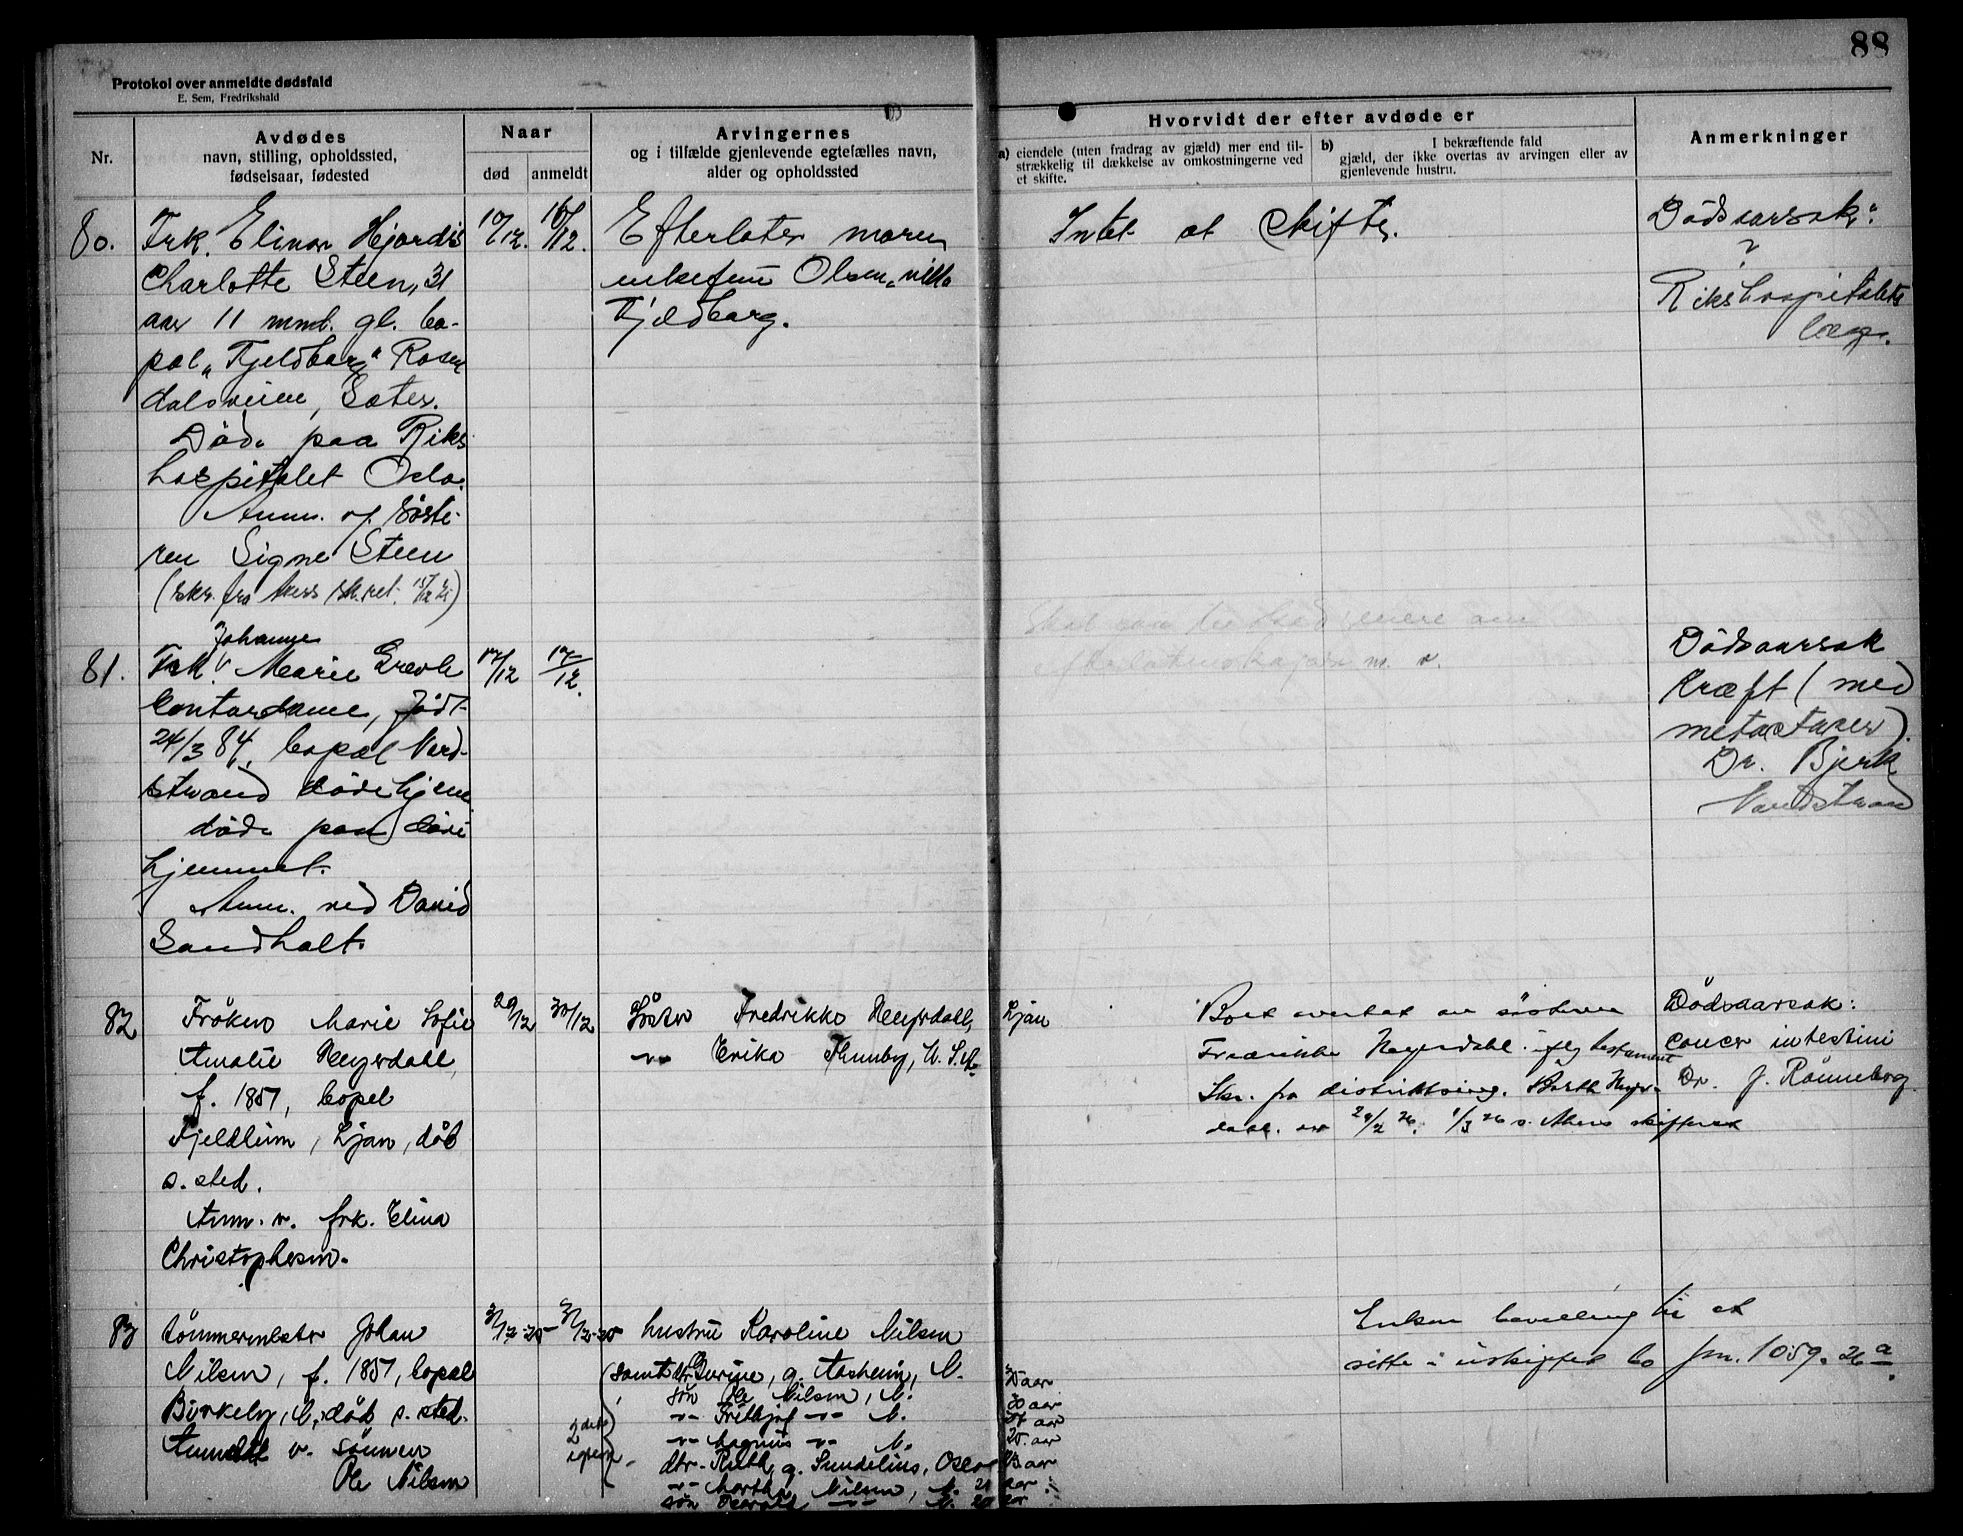 88
Protokol over anmeldte dødsfald
E. Sem, Fredrikshald
Nr.
Avdødes
navn, stilling, opholdssted,
fødselsaar, fødested
Naar
død anmeldt
Arvingernes
og i tilfælde gjenlevende egtefælles navn,
alder og opholdssted
Hvorvidt der efter avdøde er
a) eiendele (uten fradrag av gjæld) mer end til-
strækkelig til dækkelse av omkostningerne ved
et skifte.
b) I bekræftende fald
gjæld, der ikke overtas av arvingen eller av
gjenlevende hustru.
Anmerkninger
80.
Frk. Elinor Hjordis
Charlotte Steen, 31
aar 11 mnd. gl. bo-
pæl „Fjeldberg" Rosen
dalsveien, Sæter.
Døde paa Riks
hospitalet Oslo.
Anm. af søste-
ren Signe Steen
(skr. fra Akers sk.ret.
Efterlater moren
enkefru Olsen, villa
Fjeldberg.
Intet at skifte.
Dødsaarsak:
?
Rikshospitalets
læge.
81.
Johanne
Frk. Marie Grevle
kontordame, født
24/3 84, bopæl Nord-
strand
døde paa
hjemmet.
Anm. ved David
Sandholt.
17/12 17/12.
Dødsaarsak
Kræft (med
metastaser).
Dr. Bjerk
Nordstrand
82
Frøken Marie Sofie
Amalie Heyerdahl,
f. 1857, bopæl
Fjeldlum, Ljan, død
s. sted.
Anm. v. frk. Elina
Christophersen.
29/12 30/12
Søster Fredrikke Heyerdahl, Ljan
-"- Erika Thunby, U.S.A.
Boet overtat av søsteren
Fredrikke Heyerdahl iflg testament
Skr. fra distriktsing. Barth Heyer-
dahl av 29/2 26. 1/3 26 s. Akers skifteret
Dødsaarsak:
cancer intestini
Dr. J. Rønneberg
83
tømmermester Johan
Nilsen, f. 1857, bopæl
Birkely, N., død s. sted.
Anmeldt v. sønnen
Ole Nilsen
31/12-25 31/12-25
hustru Karoline Nilsen
samt dtr. g. Aasheim, N. 35 aar
søn Ole Nilsen, N. 30 aar
-"- Fritjof -"- N. aar
-"- Magnus -"- N. 25. aar
dtr. Ruth, g. Sundelius, Oslo 23 aar
-"- Martha Nilsen, N. 21 aar.
søn -"- N. 20 aar
Enken bevilling til at
sitte i uskiftet bo jnr. 1059. 26 a